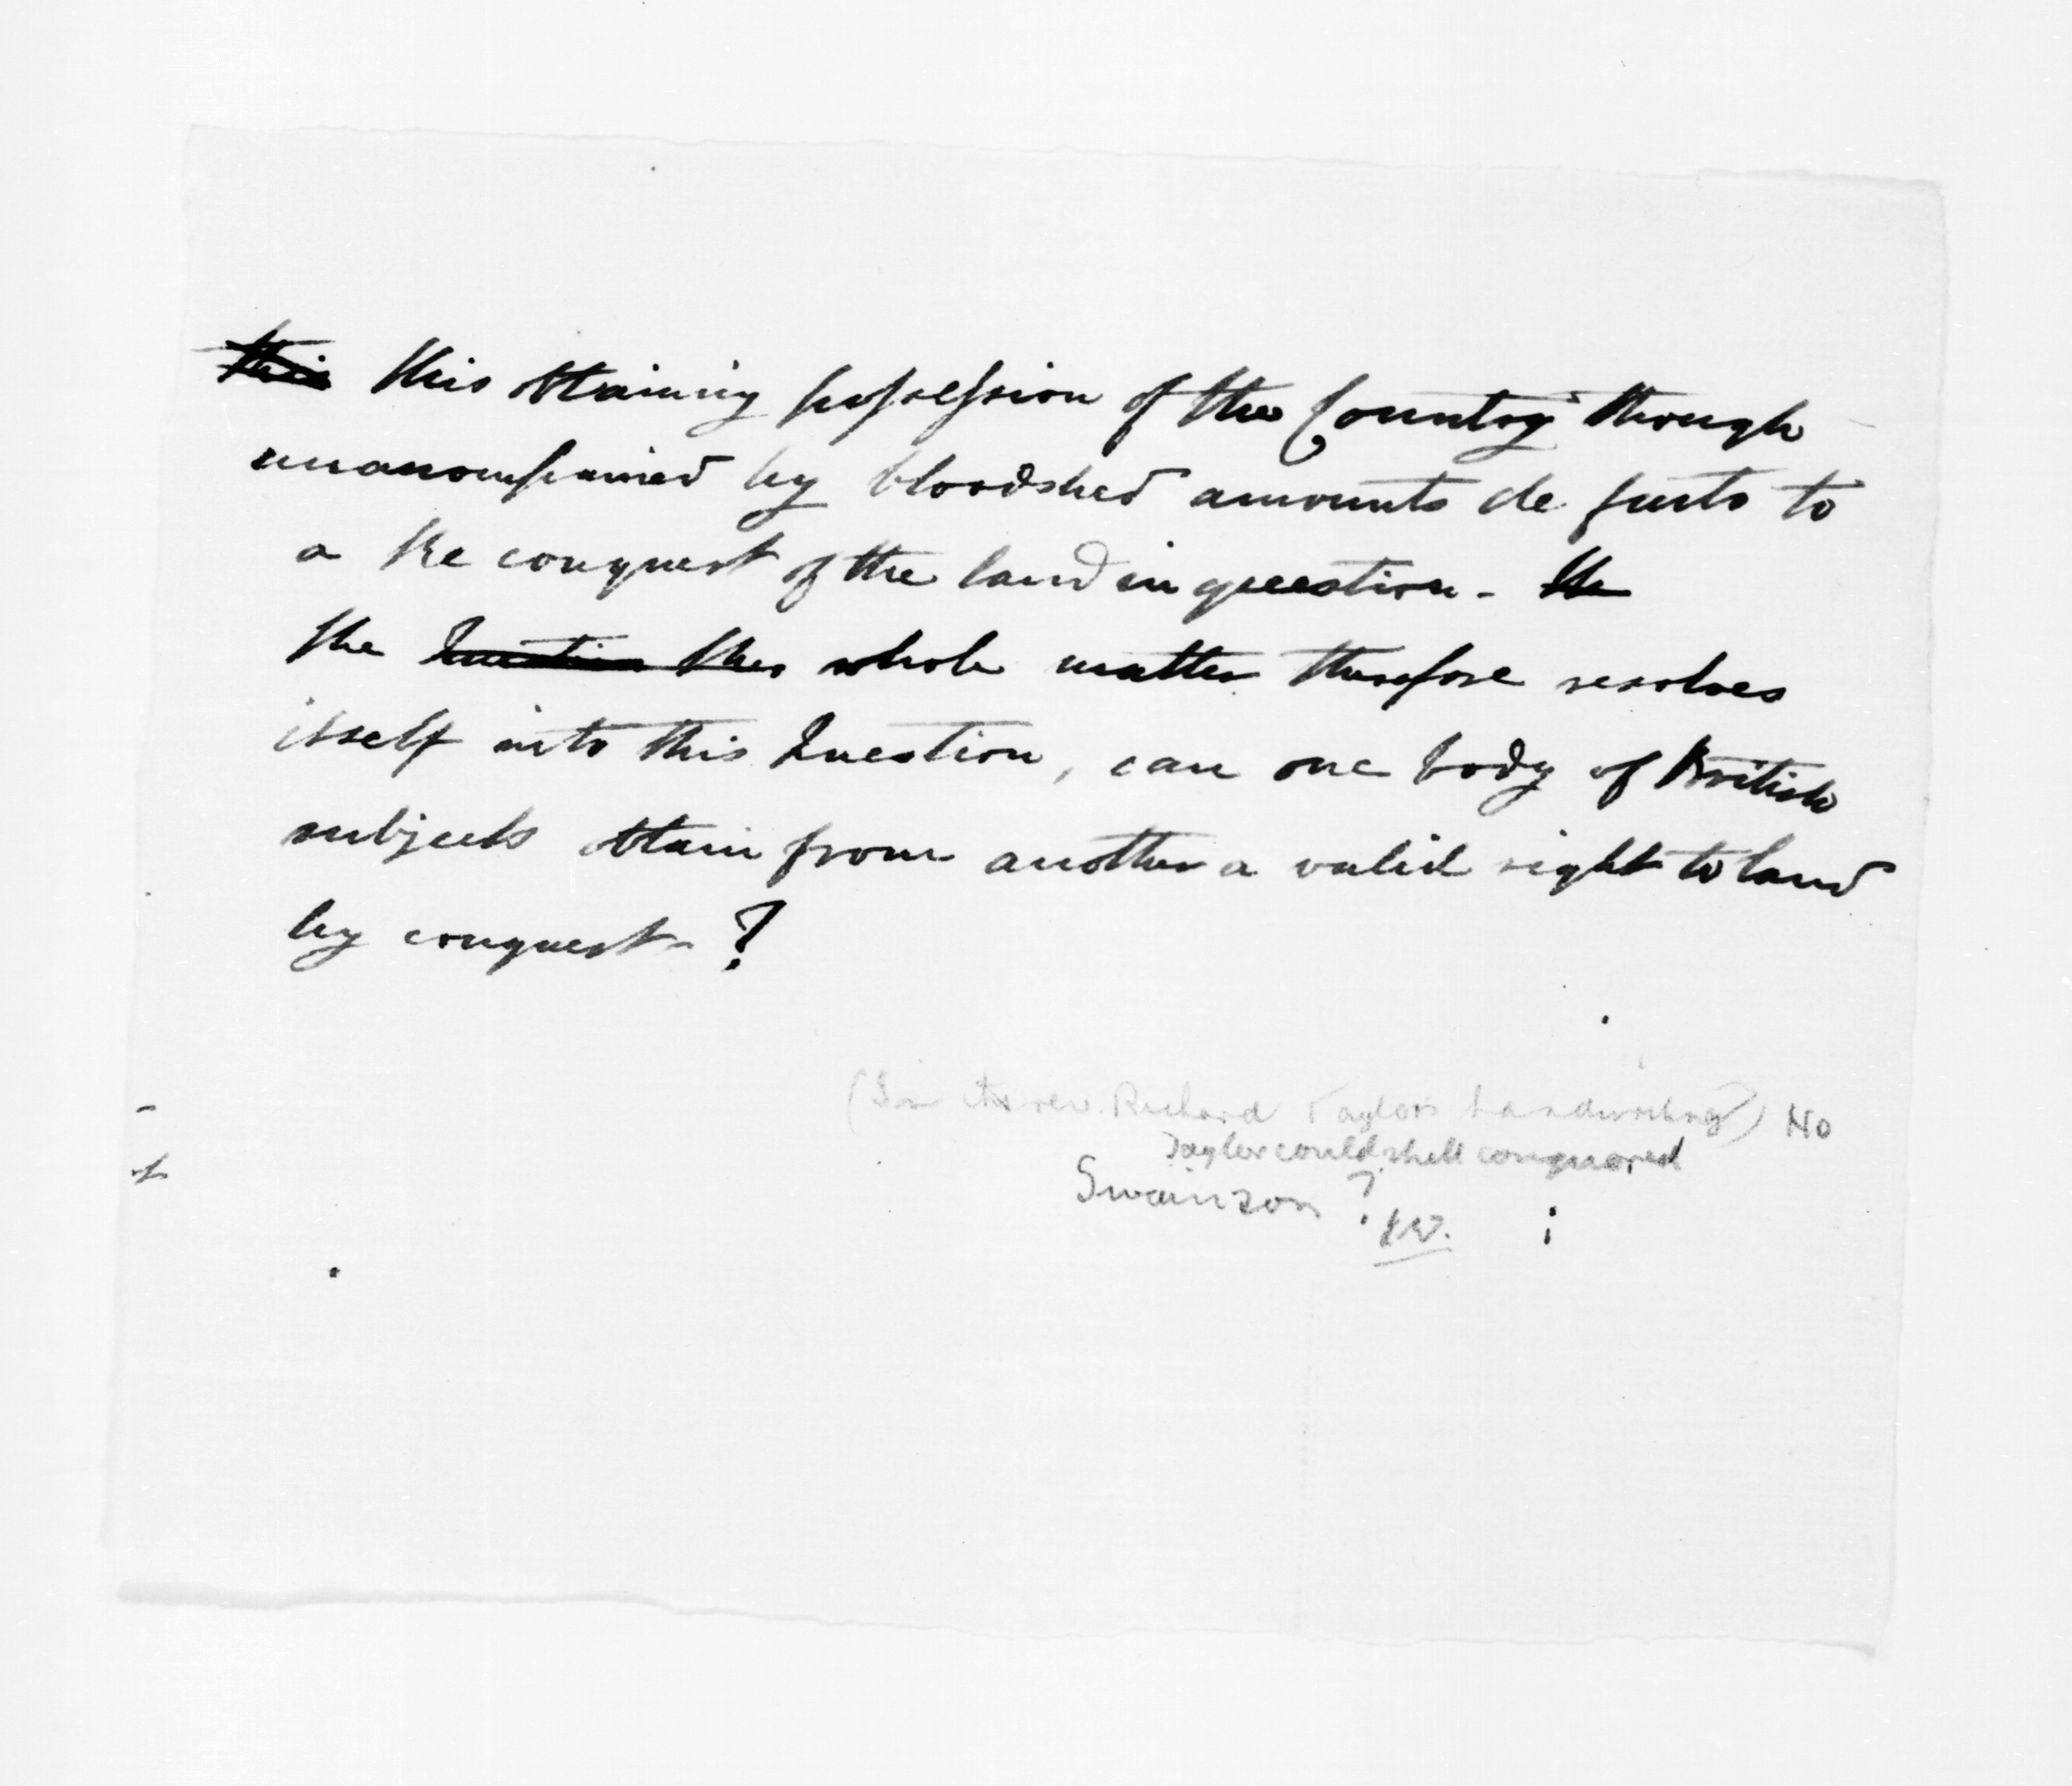 this this obtaining possession of the Country though
unaccompanied by bloodshed amounts de facto to
a Re conquest of the land in question - the
the Question then whole matter therefore resolves
itself into this Question, can one body of British
subjects obtain from another a valid right to land
by conquest ?
(In the rev. Richard Taylors handwriting) No
Taylor could spell conquered
Swainson ?